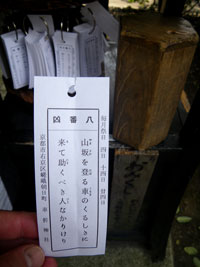 八番 凶
毎月祭日 四日 十四日 廿四日
山坂を登る車のくるしさに
来て助くべき人なかりけり
京都市右京区嵯峨朝日町 車折神社